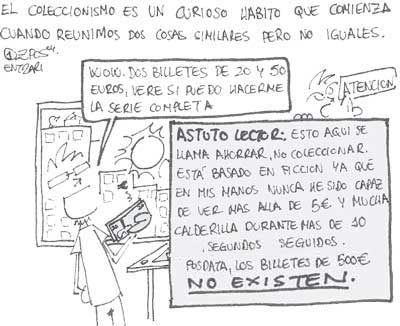 EL COLECCIONISMO ES UN CURIOSO HABITO QUE COMIENZA
CUANDO REUNIMOS DOS COSAS SIMILARES PERO NO IGUALES.
WOW. DOS BILLETES DE 20 Y 50
EUROS, VERE SI PUEDO HACERME
LA SERIE COMPLETA
ATENCION
ASTUTO LECTOR: ESTO AQUI SE
LLAMA AHORRAR, NO COLECCIONAR.
ESTÁ BASADO EN FICCION YA QUE
EN MIS MANOS NUNCA HE SIDO CAPAZ
DE VER MAS ALLA DE 5€ Y MUCHA
CALDERILLA DURANTE MAS DE 10
SEGUNDOS SEGUIDOS.
POSDATA, LOS BILLETES DE 500€
NO EXISTEN.